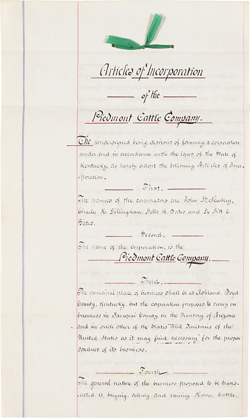 Articles of Incorporation
of the
Piedmont Cattle Company.
The undersigned being desirous of forming a corporation
under and in accordance with the laws of the State of
Kentucky, do hereby adopt the following Articles of Incor-
poration.
First.
The names of the corporators are John
Charles H.
Bates.
Second.
The name of the corporation, is the
Piedmont Cattle Company.
Third.
The principal place of business shall be at Ashland, Boyd
County, Kentucky, but the corporation proposes to carry on
business in County, in the Territory of Arizona
and in such other of the States and Territories of the
United States as it may find necessary for the proper
conduct of its business.
Fourth.
The general nature of the business proposed to be trans-
acted is buying, selling and raising Horses, Cattle,